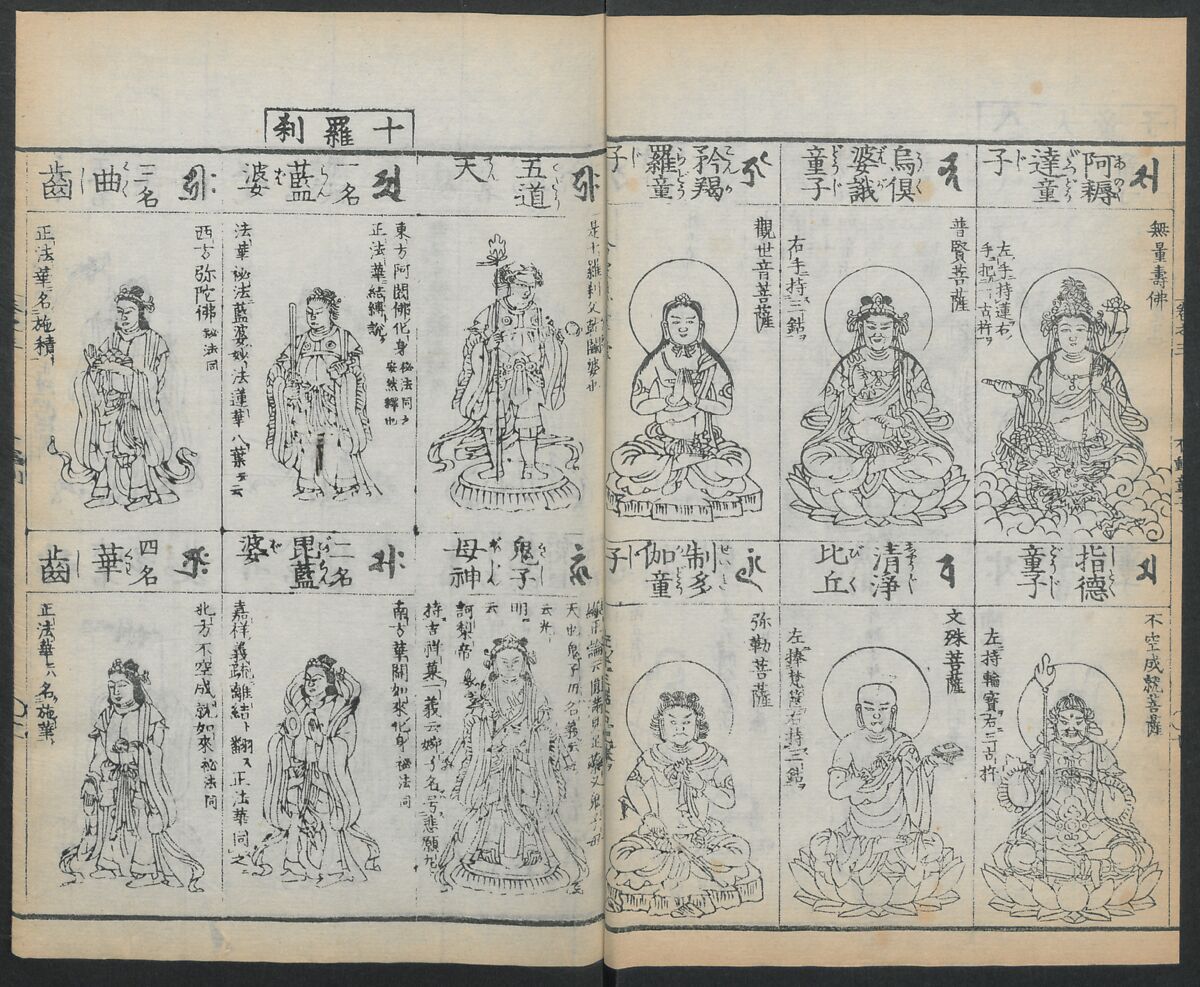 阿耨
達童
子
無量壽佛
左手持蓮右
手把一古杵ヲ
烏倶
婆誐
童子
普賢菩薩
右手持三鈷ヲ
矜羯
羅童
子
觀世音菩薩
指德
童子
不空成就菩薩
左持輪寶右三古杵
清浄
比丘
文殊菩薩
左捧梵篋右持三鈷
制多
伽童
子
弥勒菩薩
十羅刹
五道
天
一名
藍
婆
東方阿閦佛化身
秘法同シ
安然釋也
正法華結縛
法華秘法藍婆妙法蓮華八葉云云
三名
曲
齒
西方弥陀佛秘法同
正法華名施積
鬼子
母神
訶梨帝
二名
毘藍
婆
南方華開如來化身秘法同
嘉祥義疏離結
正法華同之
四名
華
齒
北方不空成就如來秘法同
正法華ハ名施華